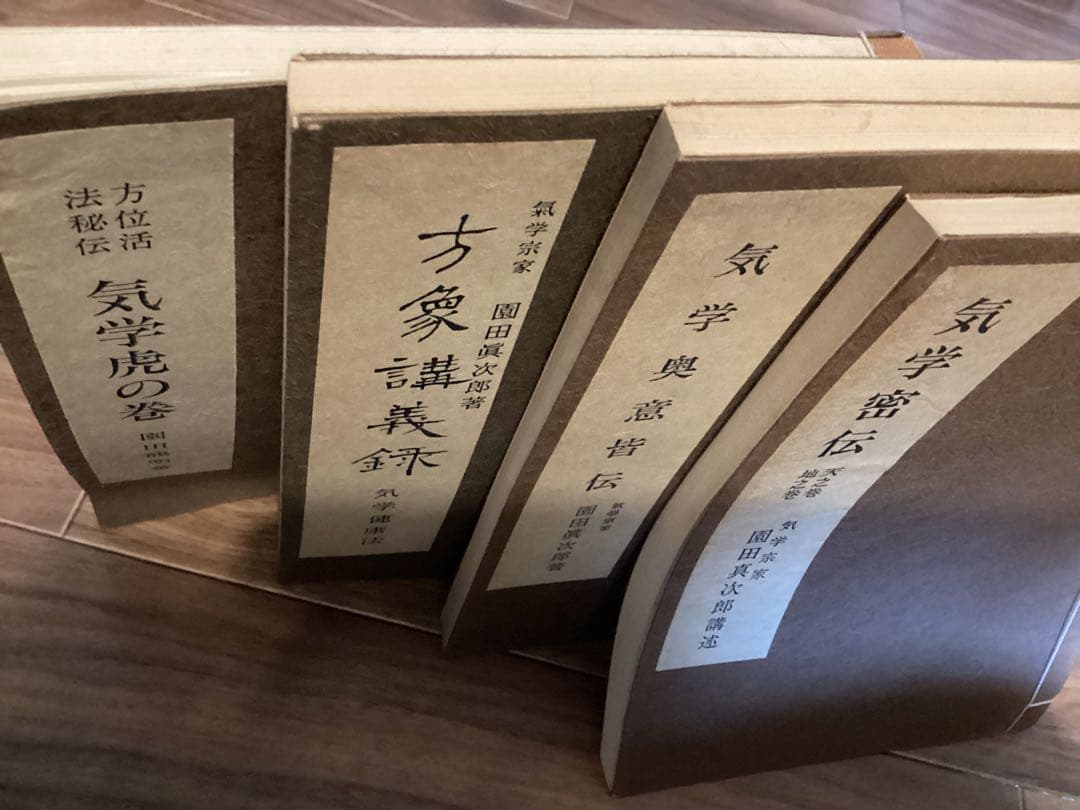 方位活
法秘伝
気学虎の巻
園田
氣学宗家
園田眞次郎著
方象講義録
気学健康法
気学奥意皆伝
氣學宗家
園田眞次郎著
気学密伝
天之巻
地之巻
気学宗家
園田真次郎講述